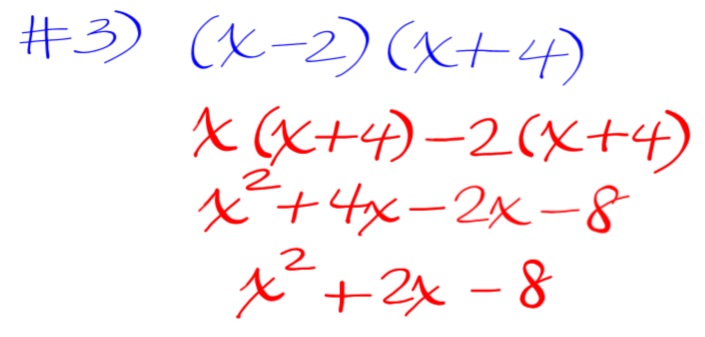 #3) (x-2)(x+4)
x(x+4)-2(x+4)
x²+4x-2x-8
x²+2x-8